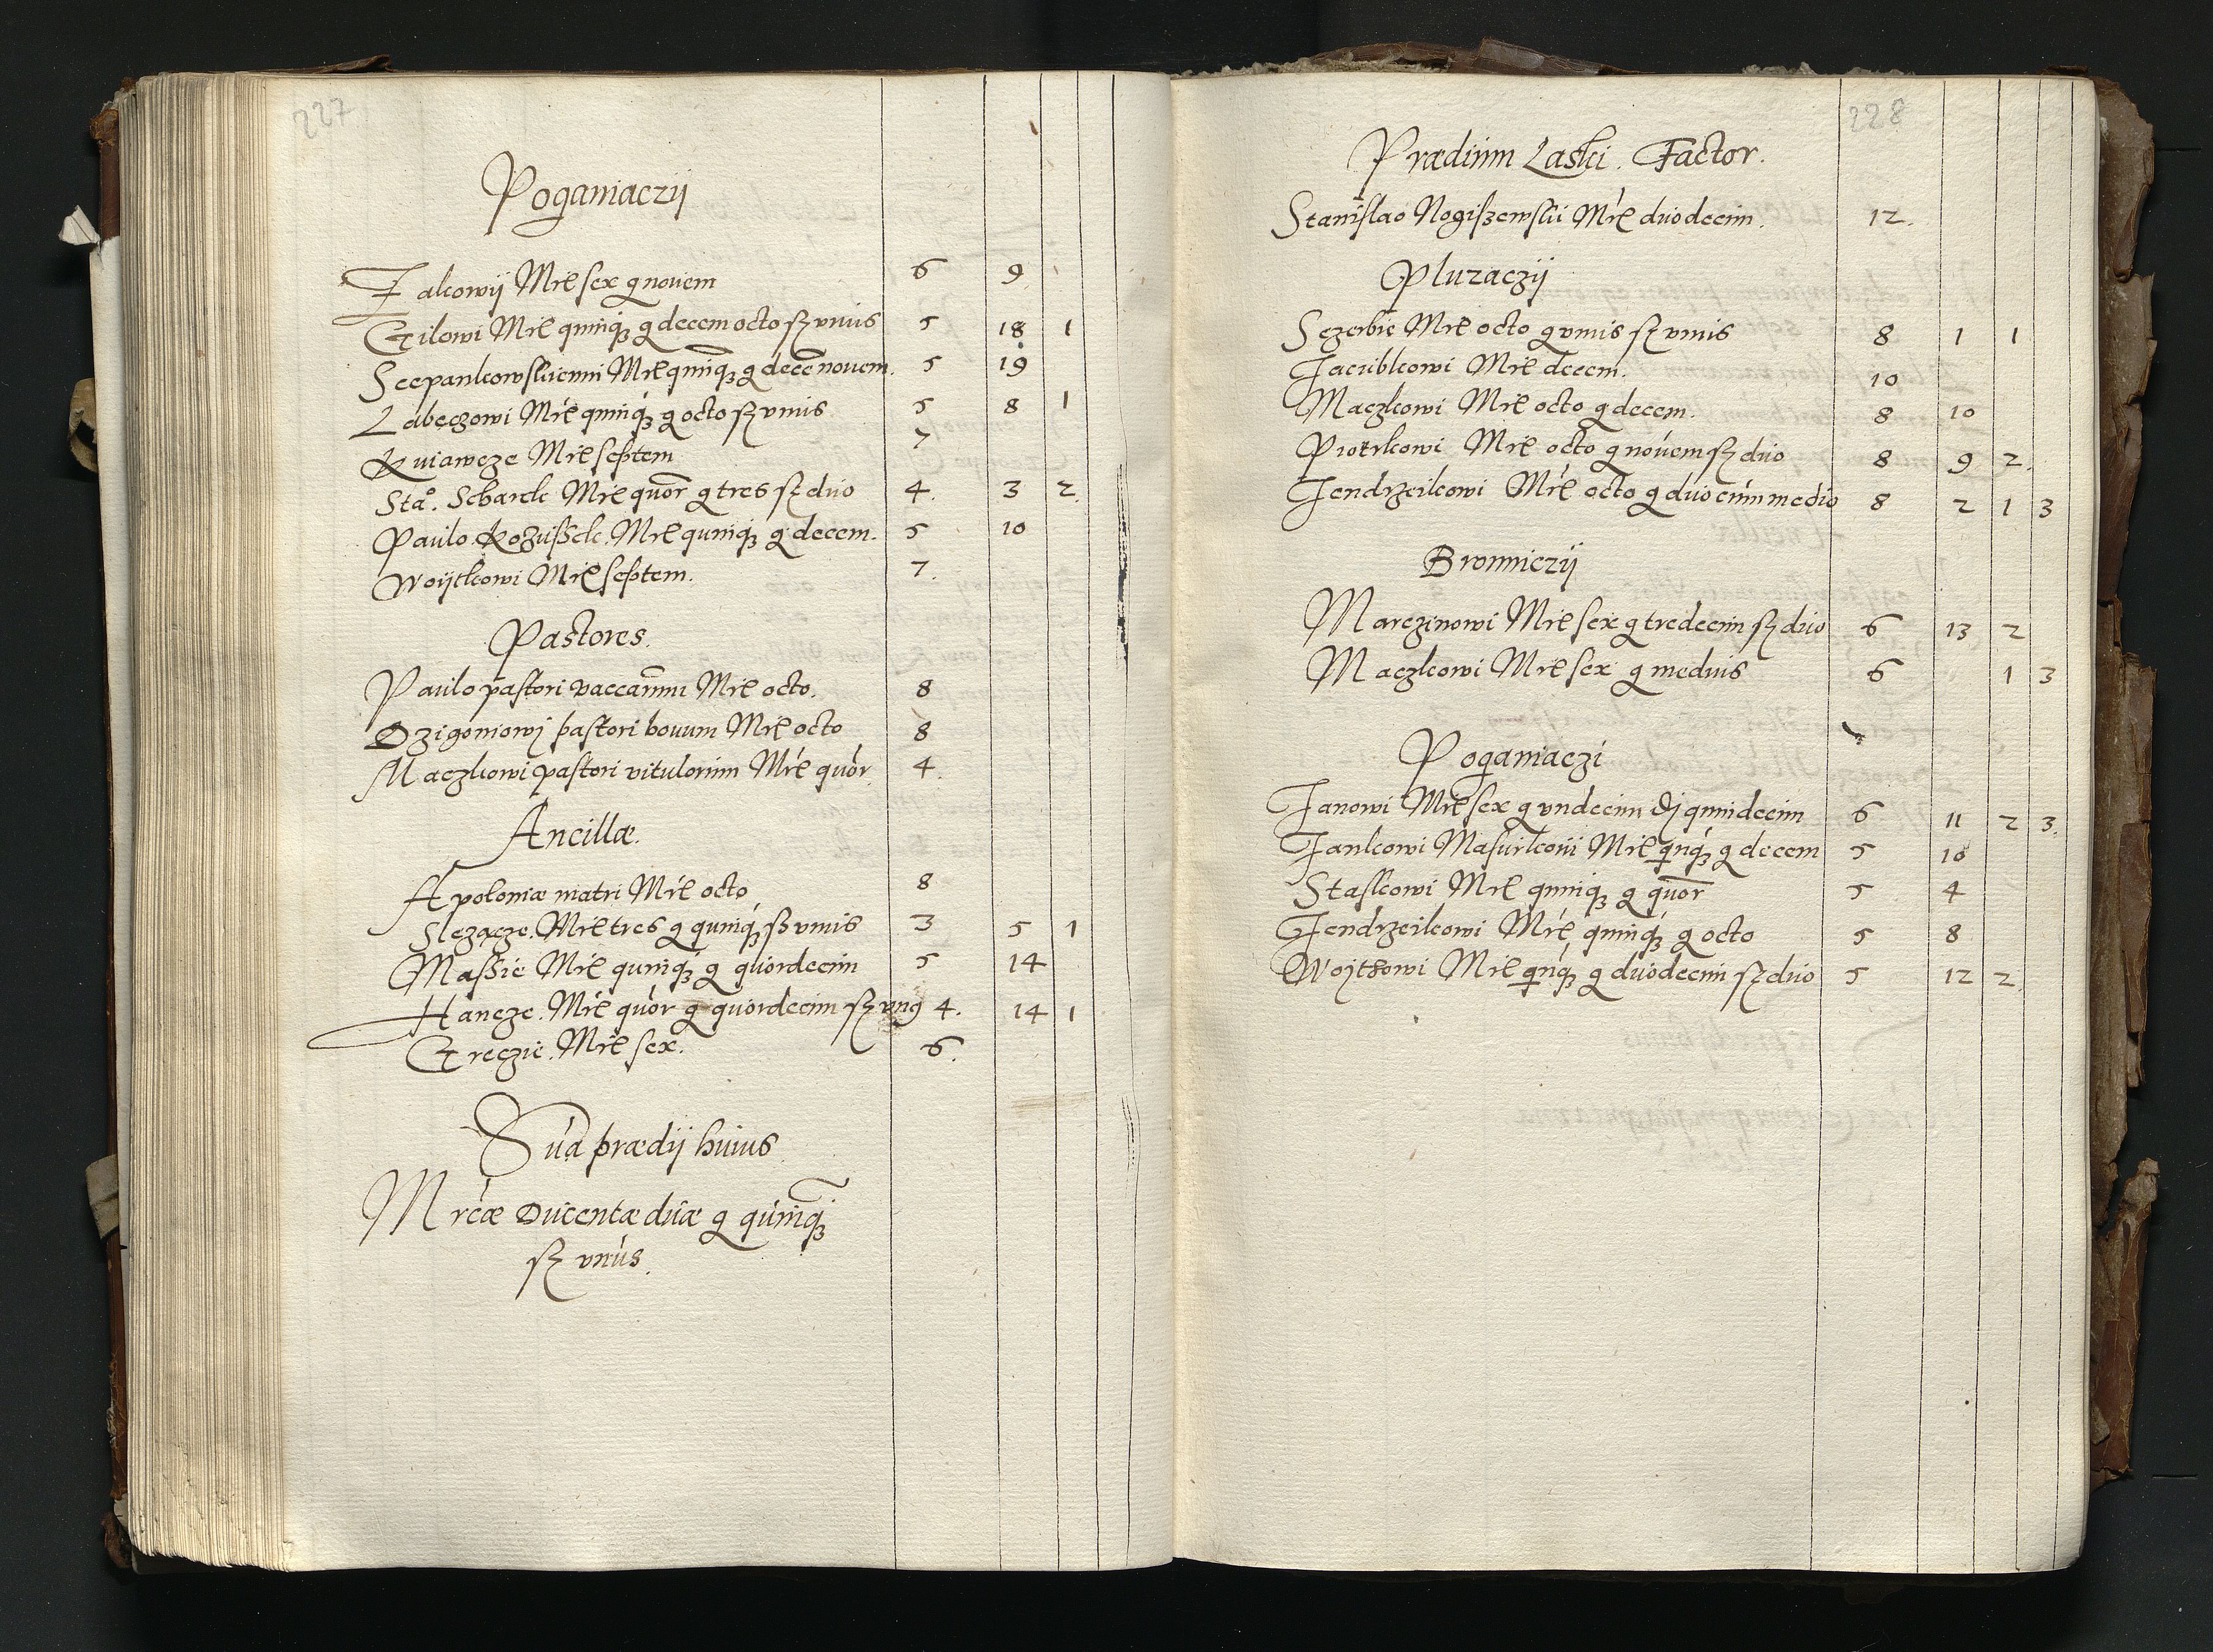 227
Poganiaczij
Falcowij Mrć sex g novem 6 9
Gilowi Mrć quinq3 g decem octo sz vnius 5 18 1
Scepankowskiemu Mrć quinq3 g decē novem. 5 19
Labęczowi Mrć quinq3 g octo sz vnius 5 8 1
Kuiawcze Mrć septem 7
Stao. Scbarek Mrć quor g tres sz duo 4. 3 2.
Paulo Kozussek. Mrć quinq3 g decem. 5 10
Woijtkowi Mrć septem. 7.
Pastores.
Paulo pastori vaccarum Mrć octo. 8
Dzigoniowj pastori bouum Mrć octo 8
Maczkowi pastori vitulorum Mrć quor 4.
Ancillæ.
Apoloniæ matri Mrć octo 8
Slęzącze. Mrć tres g quinq3 sz vnius 3 5 1
Massie Mrć quinq3 g quordecim 5 14
Hancze. Mrć quor g quordecim sz vn9 4. 14 1
Greczie. Mrć sex. 6.
Sūa prædij huius
Mrcæ Ducentæ duæ g quinq3
sz vnus.
228
Prædium Laski. Factor.
Stanislao Nogiszewskii Mrć duodecim. 12.
Pluzaczij
Sczerbie Mrć octo g vnus sz vnus 8 1 1
Jacubkowi Mrć decem. 10
Maczkowi Mrć octo g decem. 8 10
Piotrkowi Mrć octo g novem sz duo 8 9 2.
Jendrzeikowi Mrć octo g duo cum medio 8 2 1 3
Bronniczij
Marczinowi Mrć sex g tredecim sz duo 6 13 2
Maczkowi Mrć sex g medius 6 1 3
Poganiaczi
Janowi Mrć sex g vndecim dj quindecim 6 11 2 3.
Jankowi Masurkowi Mrć qnq3 g decem 5 10
Staskowi Mrć quinq3 g quor 5 4
Jendrzeikowi Mrć quinq3 g octo 5 8
Wojtkowi Mrć qnq3 g duodecim sz duo 5 12 2.